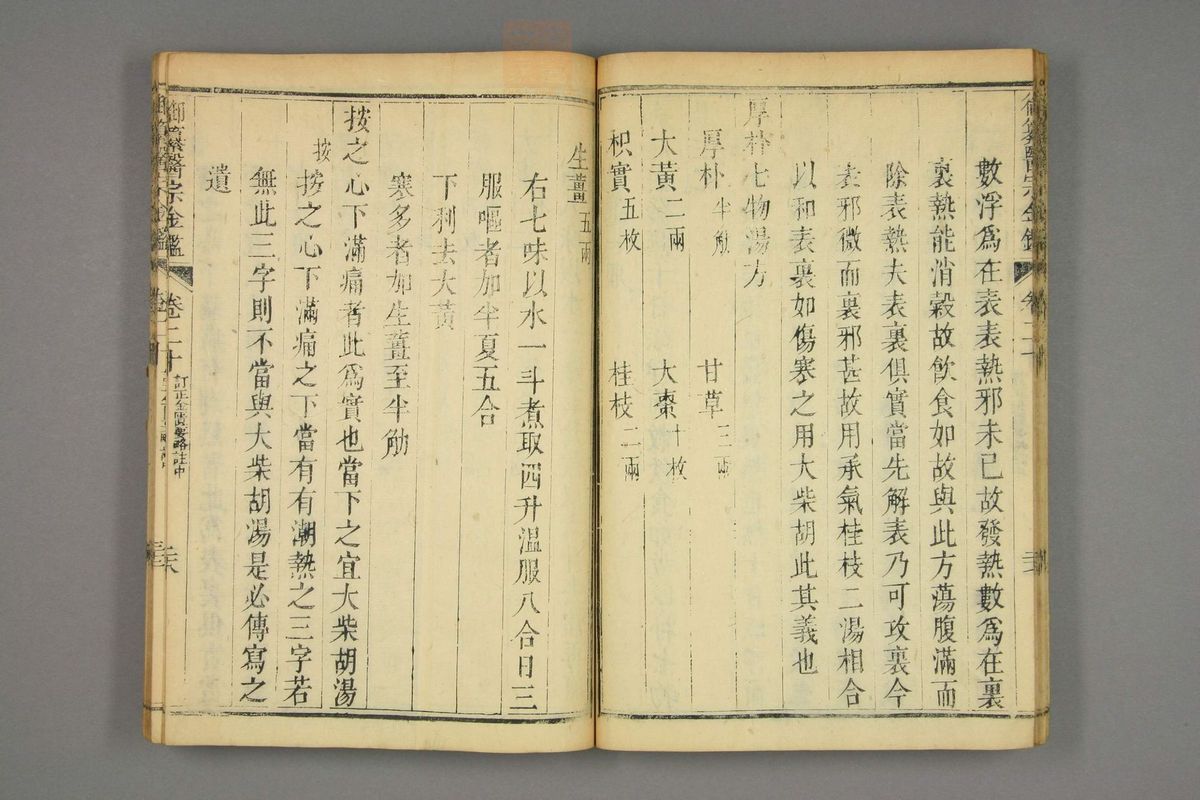 數浮爲在表表熱邪未已故發熱數爲在裏
裏熱能消穀故飲食如故與此方蕩腹滿而
除表熱夫表裏俱實當先解表乃可攻裏今
表邪微而裏邪甚故用承氣桂枝二湯相合
以和表裏如傷寒之用大柴胡此其義也
厚朴七物湯方
厚朴半觔 甘草三兩
大黃二兩 大棗十枚
枳實五枚 桂枝二兩
生薑五兩
右七味以水一斗煮取四升溫服八合日三
服嘔者加半夏五合
下利去大黃
寒多者加生薑至半觔
按之心下滿痛者此爲實也當下之宜大柴胡湯
按
按之心下滿痛之下當有有潮熱之三字若
無此三字則不當與大柴胡湯是必傳寫之
遺
御纂醫宗金鑑
卷二十
訂正金匱要略註中